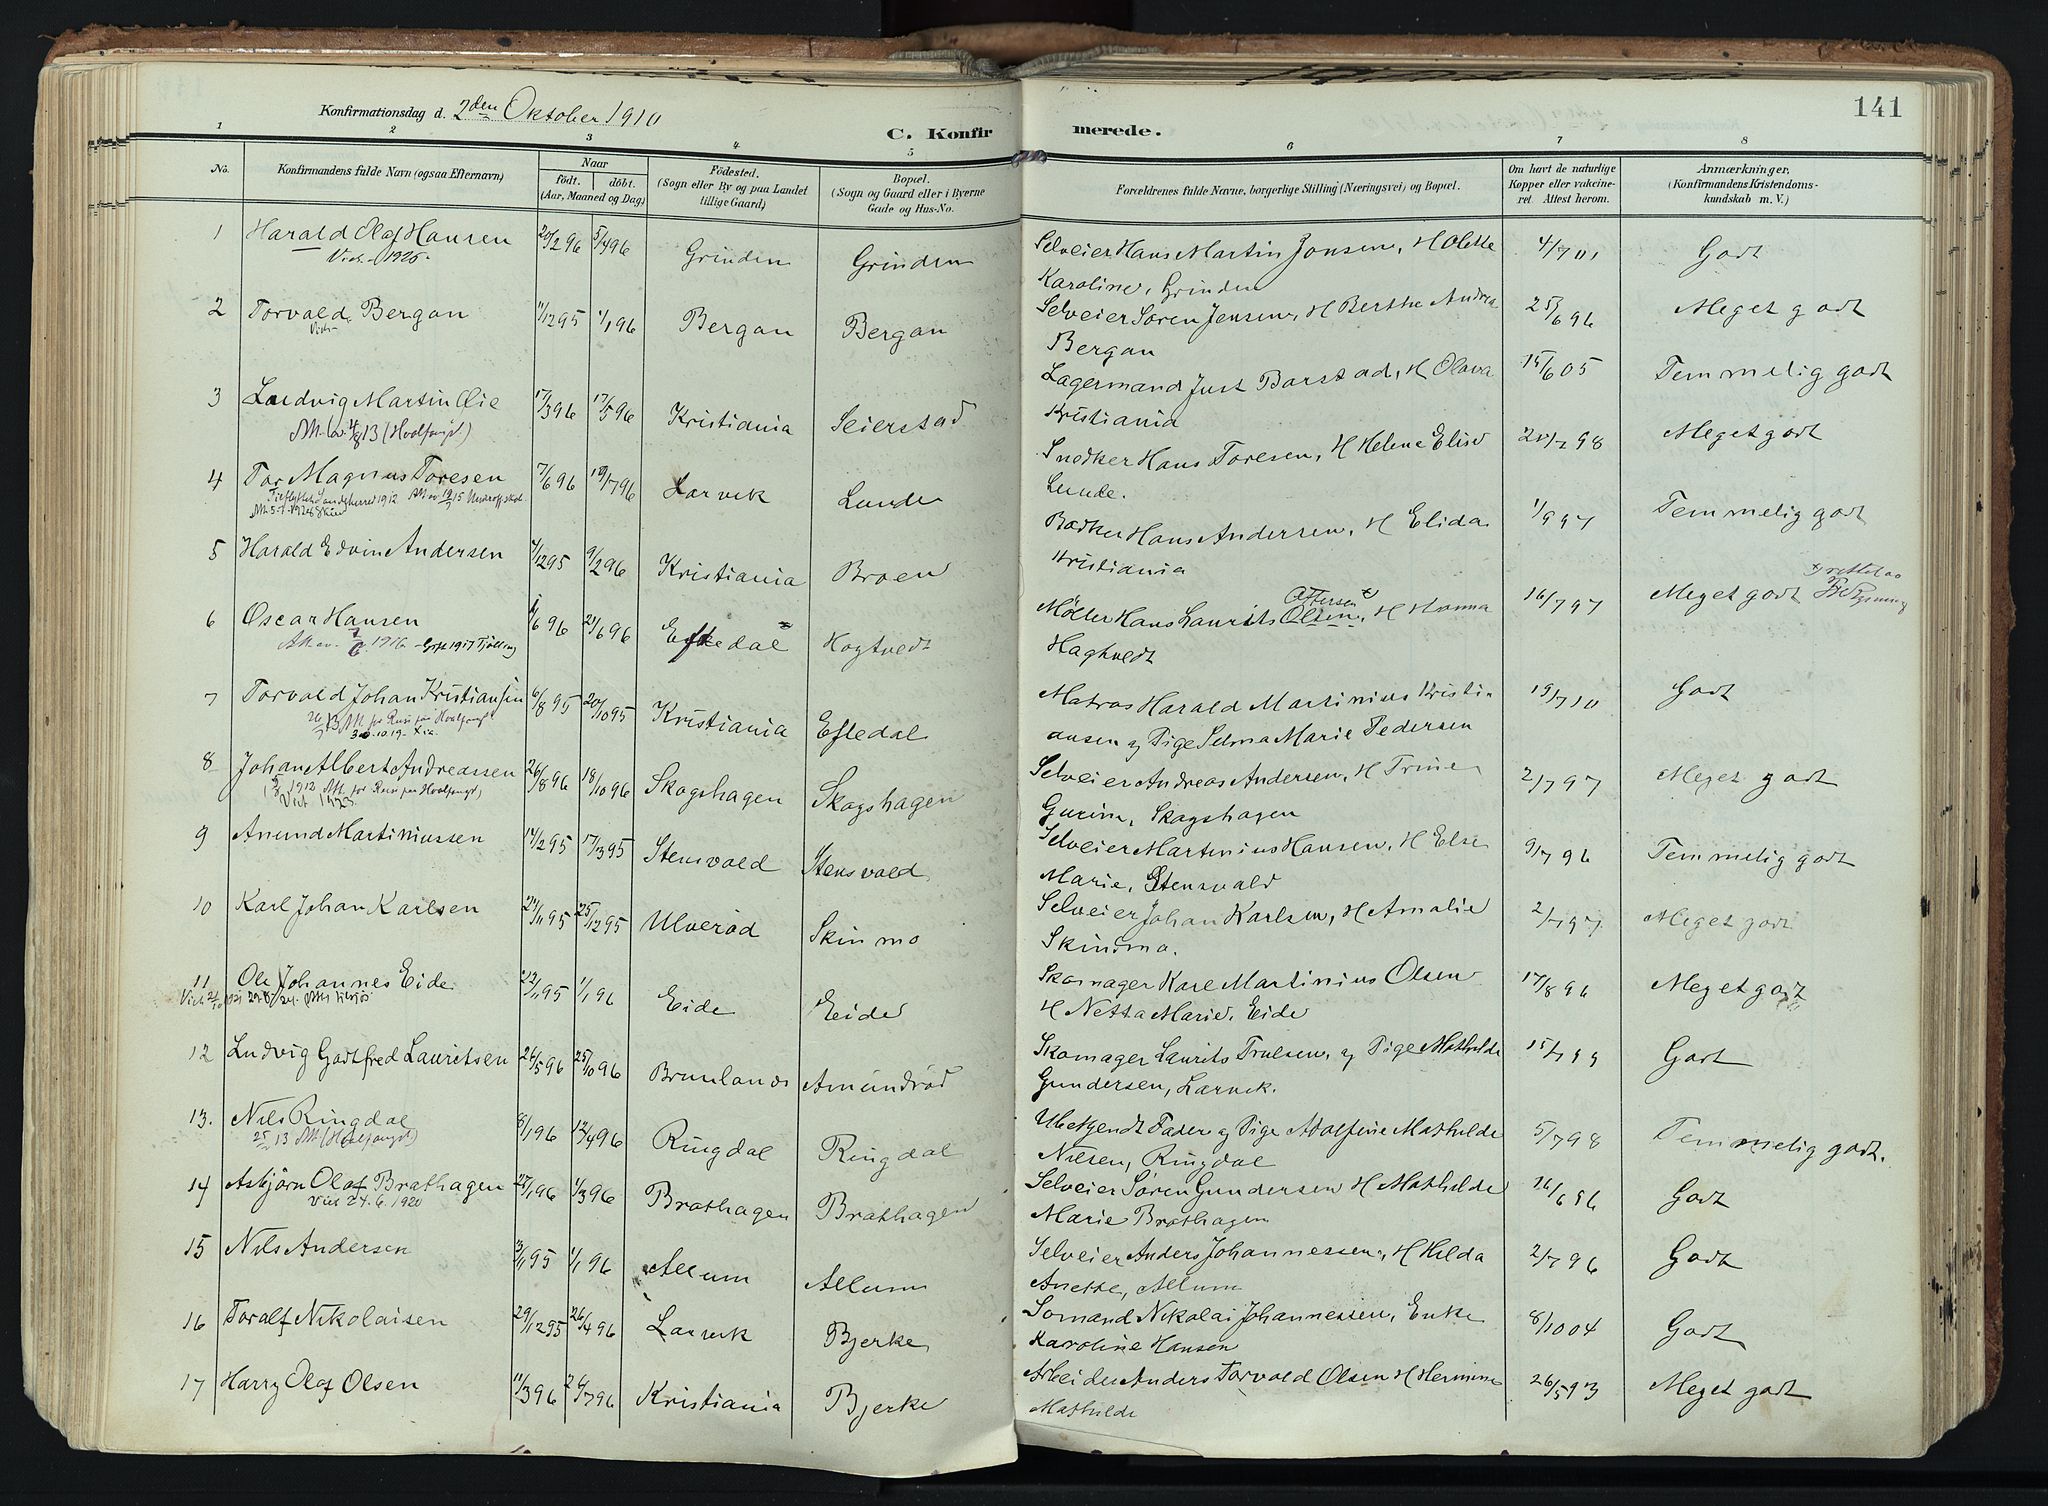 Konfirmationsdag d. 2den Oktober 1910
C. Konfirmerede. 141
1 2 3 4 5 6 7 8
No. Konfirmandens fulde Navn (ogsaa Efternavn) Naar født. døbt. (Aar, Maaned og Dag) Fødested. (Sogn eller By og paa Landet tillige Gaard) Bopæl. (Sogn og Gaard eller i Byerne Gade og Hus-No. Forældrenes fulde Navne, borgerlige Stilling (Næringsvei) og Bopæl. Om havt de naturlige Kopper eller vakcineret. Attest herom. Anmærkninger, (Konfirmandens Kristendomskundskab m. V.)
1 Harald Olaf Hansen 20/2 96 5/4 96 Grinden Grinden Selveier Hans Martin Jonsen, H Olette 4/7 01 Godt
Viet 1926. Karoline, Grinden
2 Torvald Bergan 11/12 95 1/1 96 Bergan Bergan Selveier Søren Jensen, H Berthe Andrea 25/6 96 Meget godt
Viet Bergan
3 Ludvig Martin Oie 17/3 96 17/5 96 Kristiania Seierstad Lagermand Just Barstad, H Olava 15/6 05 Temmelig godt
Att. av. 4/8 13 (Hvalfangst.) Kristiania
4 Tor Magnus Toresen 7/6 96 19/7 96 Larvik Lunde Snedker Hans Toresen, H Helene Elise 98 Meget godt
Lunde.
5 Harald Edvin Andersen 4/12 95 9/2 96 Kristiania Broen Bødker Hans Andersen, H Elida 1/9 97 Temmelig godt
Kristiania
6 Oscar Hansen 1/6 96 21/6 96 Eftedal Hogtvedt Møller Hans Laurits Olsen, H Hanna 16/7 97 Meget godt
Att. av. 1916 Gift 1917 Tjølling Hagtvedt
7 Torvald Johan Kristiansen 6/8 95 20/10 95 Kristiania Eftedal Matros Harald Martinius Kristi- 19/7 10 Godt
Att. for Reise paa Hvalfangst ansen og Pige Selma Marie Pedersen
8 Johan Albert Andreassen 26/8 96 18/10 96 Skogshagen Skogshagen Selveier Andreas Andersen, H Trine 2/7 97 Meget godt
1912 Att. for Reise paa Hvalfangst) Gurine, Skogshagen
Viet 1923.
9 Anund Martiniussen 14/2 95 17/3 95 Stensvold Stensvold Selveier Martinius Hansen, H Else 9/7 96 Temmelig godt
Marie, Stensvold
10 Karl Johan Karlsen 24/11 95 25/12 95 Ulverød Skinmo Selveier Johan Karlsen, H Amalie 2/7 97 Meget godt
Skinsmo.
11 Ole Johannes Eide 22/11 95 1/1 96 Eide Eide Skomager Karl Martinius Olsen 17/8 96 Meget godt
H Netta Marie, Eide
12 Ludvig Godtfred Lauritsen 26/5 96 25/10 96 Brunlanes Amundrød Skomager Laurits Trulsen, og Pige Mathilde 15/7 99 Godt
Gundersen, Larvik.
13. Nils Ringdal 8/1 96 12/4 96 Ringdal Ringdal Ubekjendt Fader og Pige Adolfine Mathilde 5/7 98 Temmelig godt.
13 Att. (Hvalfangst) Nilsen, Ringdal
14 Asbjørn Olaf Brathagen 27/1 96 1/3 96 Brathagen Brathagen Selveier Søren Gundersen H Mathilde 16/6 96 Godt
Viet 24.6.1920 Marie Brathagen
15 Nils Andersen 3/11 95 1/1 96 Allum Allum Selveier Anders Johannessen, H Hilda 2/7 96 Godt
Anette, Allum
16 Toralf Nikolaisen 29/12 95 26/4 96 Larvik Bjerke Sømand Nikolai Johannessen, Enke 8/10 04 Godt
Karoline Hansen
17 Harry Olaf Olsen 11/3 96 26/7 96 Kristiania Bjerke Arbeider Anders Torvald Olsen H Hermine 26/5 93 Meget godt
Mathilde